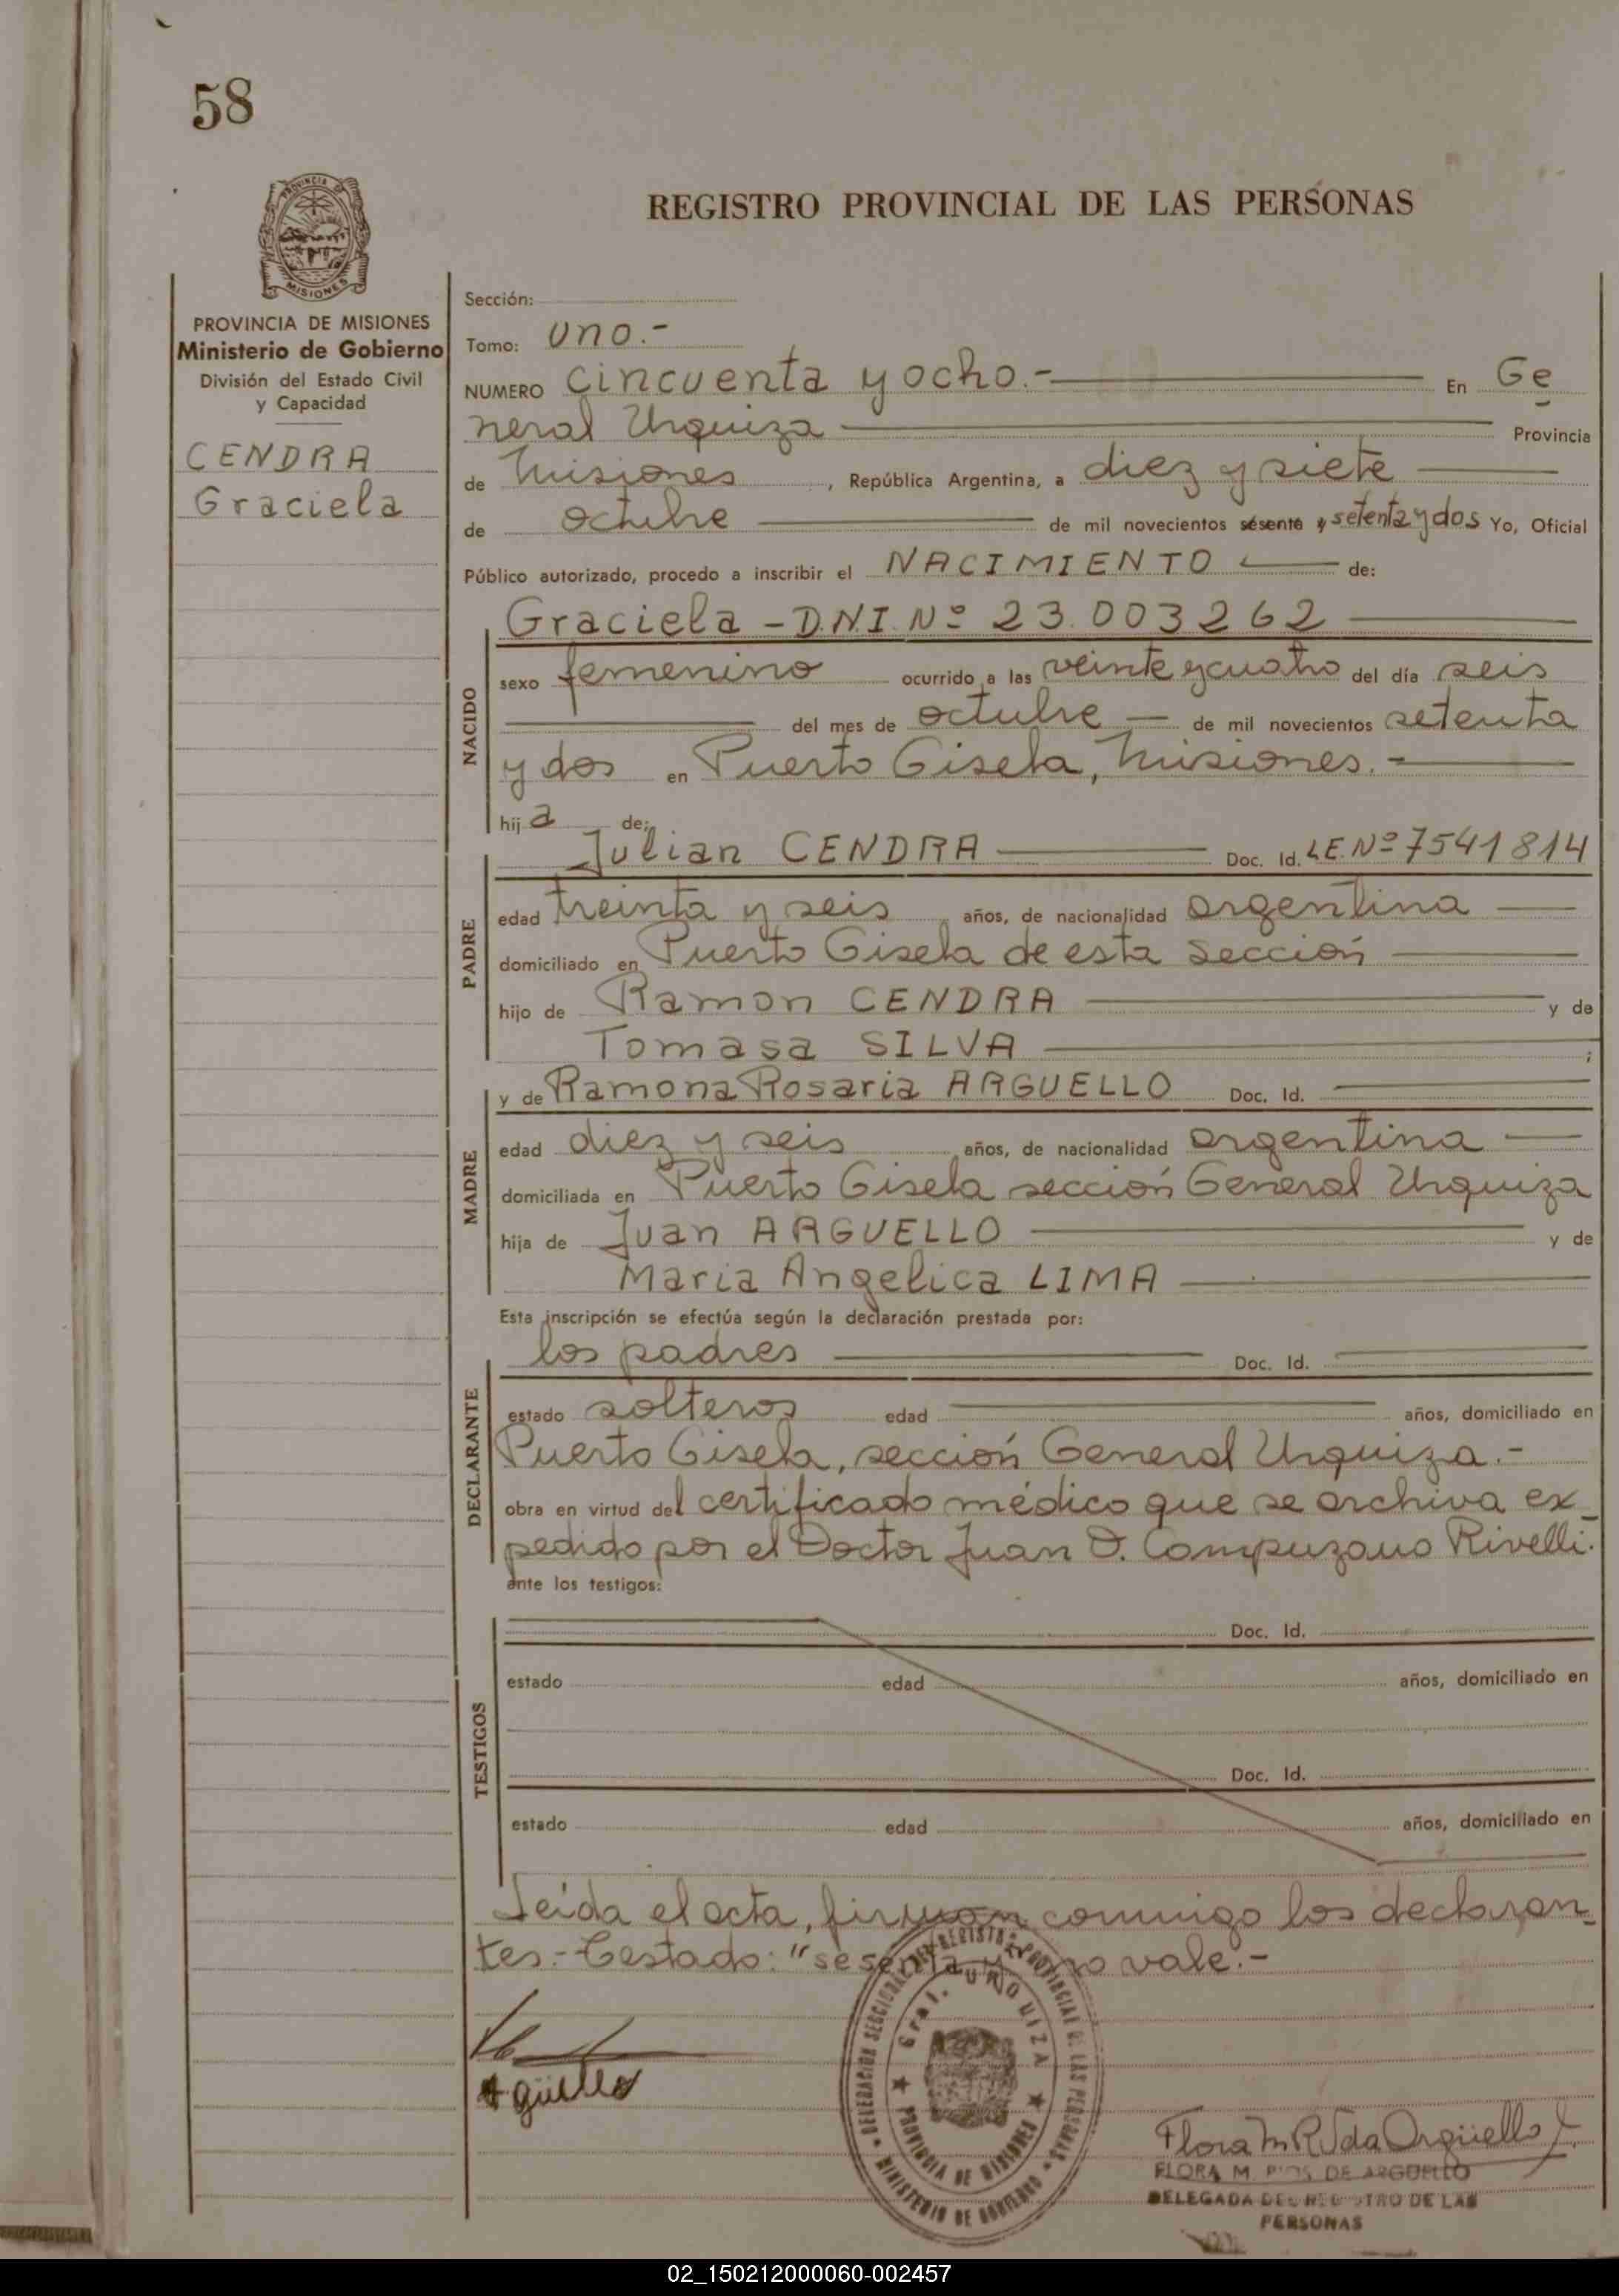 58
PROVINCIA DE
MISIONES
REGISTRO PROVINCIAL DE LAS PERSONAS
PROVINCIA DE MISIONES
Ministerio de Gobierno
División del Estado Civil
y Capacidad
CENDRA
Graciela
Sección:
Tomo: uno.-
NUMERO cincuenta y ocho.- En Ge
neral Urquiza Provincia
de Misiones, República Argentina, a diez y siete
de octubre de mil novecientos sesenta y setenta y dos Yo, Oficial
Público autorizado, procedo a inscribir el NACIMIENTO de:
Graciela - D.N.I. Nº 23.003262
NACIDO
sexo femenino ocurrido a las veinte y cuatro del día seis
del mes de octubre - de mil novecientos setenta
y dos en Puerto Gisela, Misiones.-
hija de:
Julian CENDRA Doc. Id. L.E. Nº 7541814
PADRE
edad treinta y seis años, de nacionalidad argentina
domiciliado en Puerto Gisela de esta sección
hijo de Ramon CENDRA y de
Tomasa SILVA ;
y de Ramona Rosaria ARGUELLO Doc. Id.
MADRE
edad diez y seis años, de nacionalidad argentina
domiciliada en Puerto Gisela sección General Urquiza
hija de Juan ARGUELLO y de
Maria Angelica LIMA
Esta inscripción se efectúa según la declaración prestada por:
los padres Doc. Id.
DECLARANTE
estado solteros edad años, domiciliado en
Puerto Gisela, sección General Urquiza.-
obra en virtud del certificado médico que se archiva ex
pedido por el Doctor Juan D. Campuzano Rivelli.
ante los testigos:
TESTIGOS
Doc. Id.
estado edad años, domiciliado en
Doc. Id.
estado edad años, domiciliado en
Leida el acta, firman conmigo los declaran
tes.- Testado: "sesenta y" no vale.-
DELEGACION SECCIONAL DEL REGISTRO PROVINCIAL DE LAS PERSONAS
MINISTERIO DE GOBIERNO
Gral. URQUIZA
PROVINCIA DE MISIONES
Flora M R Vda Argüello
FLORA M. DE ARGUELLO
DELEGADA DEL REGISTRO DE LAS
PERSONAS
02_150212000060-002457